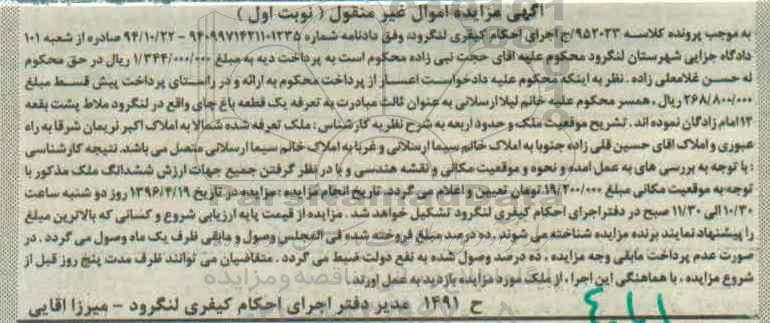 آگهی مزایده اموال غیر منقول ( نوبت اول )
به موجب پرونده کلاسه ۹۵۲۰۳۳/ج اجرای احکام کیفری لنگرود، وفق دادنامه شماره ۹۴۰۹۹۷۱۴۲۱۱۰۱۲۳۵ – ۹۴/۱۰/۲۲ صادره از شعبه ۱۰۱
دادگاه جزایی شهرستان لنگرود محکوم علیه آقای حجت نبی زاده محکوم است به پرداخت دیه به مبلغ ۱/۳۴۴/۰۰۰/۰۰۰ ریال در حق محکوم
له حسن غلامعلی زاده . نظر به اینکه محکوم علیه دادخواست اعسار از پرداخت محکوم به ارائه و در راستای پرداخت پیش قسط مبلغ
۲۶۸/۸۰۰/۰۰۰ ریال ، همسر محکوم علیه خانم لیلا ارسلانی به عنوان ثالث مبادرت به تعرفه یک قطعه باغ چای واقع در لنگرود ملاط پشت بقعه
۱۳ امام زادگان نموده اند . تشریح موقعیت ملک و حدود اربعه به شرح نظریه کارشناس : ملک تعرفه شده شمالا به املاک اکبر نریمان شرقا به راه
عبوری و املاک آقای حسین قلی زاده جنوبا به املاک خانم سیما ارسلانی و غربا به املاک خانم سیما ارسلانی متصل می باشد. نتیجه کارشناسی
: با توجه به بررسی های به عمل آمده و نحوه و موقعیت مکانی و نقشه هندسی و با در نظر گرفتن جمیع جهات ارزش ششدانگ ملک مذکور با
توجه به موقعیت مکانی مبلغ ۱۹/۲۰۰/۰۰۰ تومان تعیین و اعلام می گردد. تاریخ انجام مزایده : مزایده در تاریخ ۱۳۹۶/۴/۱۹ روز دو شنبه ساعت
۱۰/۳۰ الی ۱۱/۳۰ صبح در دفتر اجرای احکام کیفری لنگرود تشکیل خواهد شد . مزایده از قیمت پایه ارزیابی شروع و کسانی که بالاترین مبلغ
را پیشنهاد نمایند برنده مزایده شناخته می شوند . ده درصد مبلغ فروخته شده فی المجلس وصول و مابقی ظرف یک ماه وصول می گردد . در
صورت عدم پرداخت مابقی وجه مزایده ، ده درصد وصول شده به نفع دولت ضبط می گردد . متقاضیان می توانند ظرف مدت پنج روز قبل از
شروع مزایده ، با هماهنگی این اجرا ، از ملک مورد مزایده بازدید به عمل آورند
ح ۱۴۹۱ مدیر دفتر اجرای احکام کیفری لنگرود – میرزا آقایی